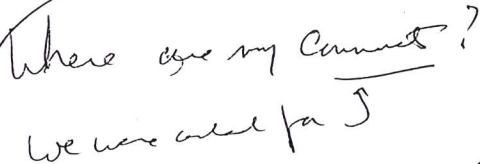 Where are my Comments?
We were asked for 5